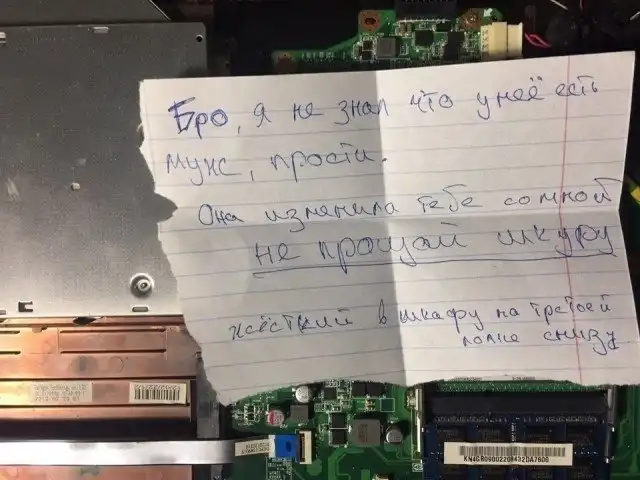 Бро, я не знал что у неё есть
мужс, прости.
Она изменила тебе со мной
не прощай шкуру
жёсткий в шкафу на третьей
полке снизу
KN4GB09002208432DA7600